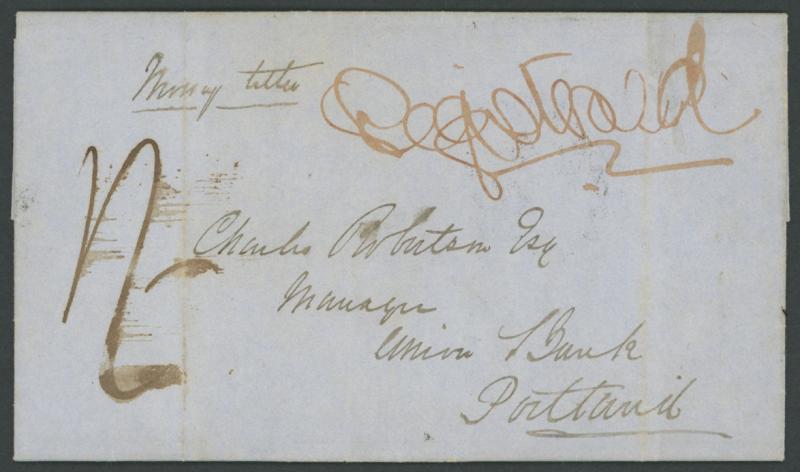 Money letter
Registered
Charles Robertson Esq
Manager
Union Bank
Portland